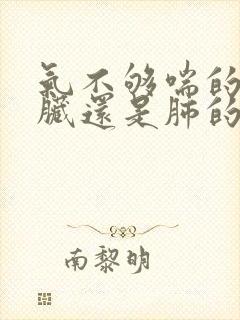 氣不够喘的
臟還是肺的
南黎明